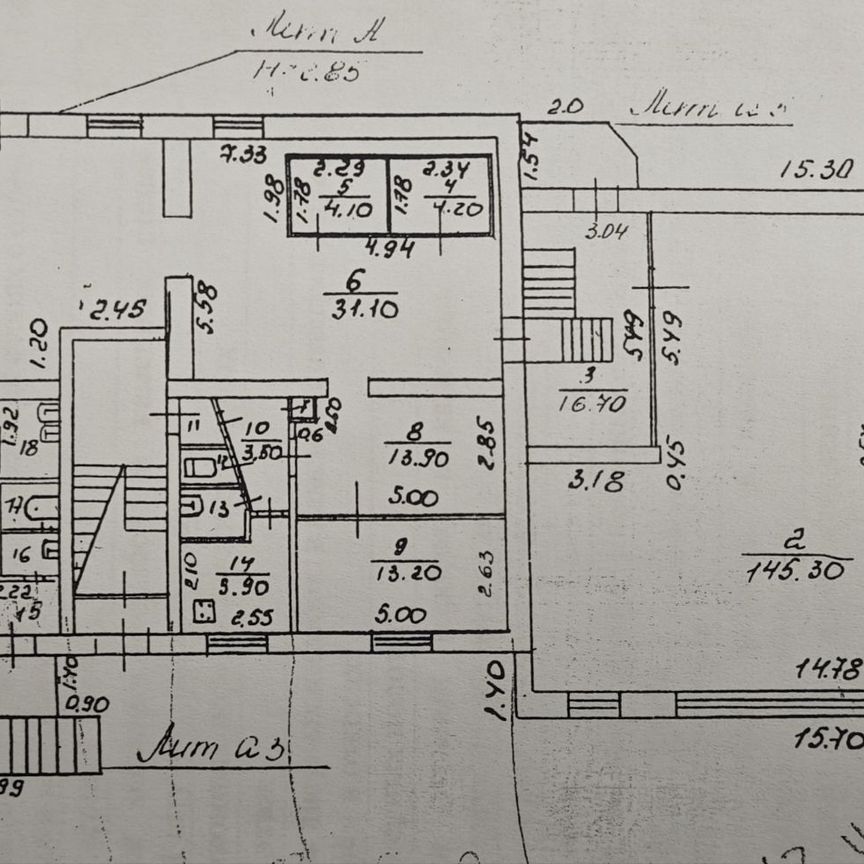 Лит А
H=2.85
2.0
Лит а 3
1.54
15.30
7.33
2.29
2.34
1.98
1.78
5
4.10
1.78
4
4.20
4.94
3.04
6
31.10
5.58
2.45
1.20
5.49
5.49
3
16.70
1.92
18
11
10
3,60
0.6
8
13.90
2.85
5.00
3.18
0.45
12
13
17
16
2.22
15
2.10
14
5.90
2.55
9
13.20
2.63
5.00
2
145.30
1.40
0.90
1.40
14.78
15.70
Лит а 3
99